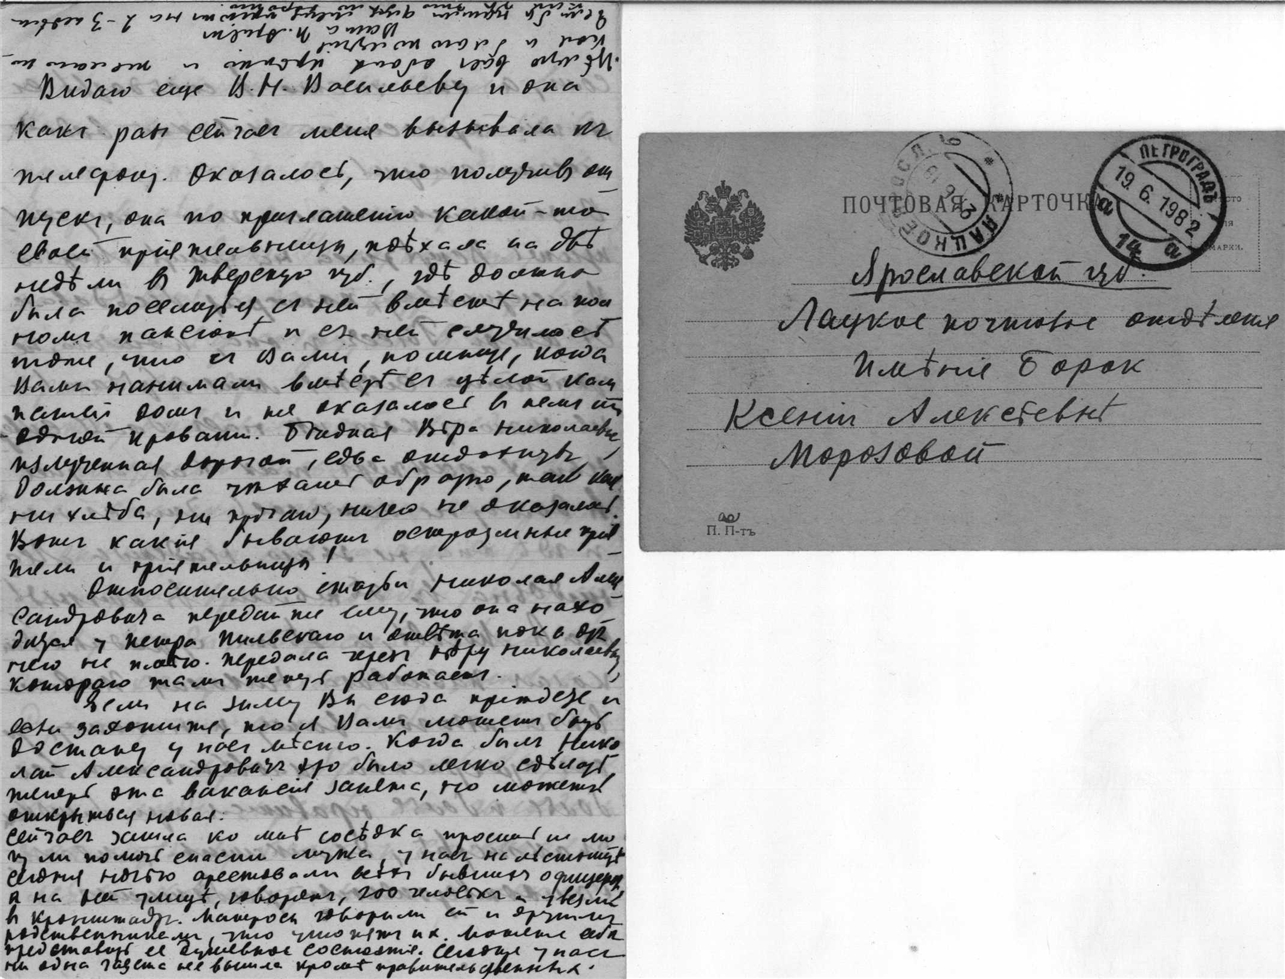 Видаю еще В.Н. Васильеву и она
какъ разъ сейчасъ меня вызывала къ
телефону. Оказалось, что получивъ от
пускъ, она по приглашенію какой-то
своей пріятельницы, поѣхала на двѣ
недѣли въ Тверскую губ., гдѣ должна
была поселиться съ ней вмѣстѣ на пол
номъ пансіонѣ и съ ней случилось
тоже, что съ Вами, помните, когда
Вами нанимали вмѣстѣ съ цѣлой ком
паніей домъ и не оказалось в немъ ни
одной кровати. Бѣдная Вѣра Николаевна,
измученная дорогой, едва отдохнувъ,
должна была уѣхать обратно, такъ какъ
ни хлѣба, ни прочаго, ничего не оказалось.
Вотъ какіе бываютъ остроумные прія
тели и пріятельницы!
Относительно статьи Николая Алек
сандровича передайте ему, что она нахо
дится у Петра Пильскаго и отвѣта пока отъ
него не имѣю. Передала черезъ Вѣру Николаевну,
котораго тамъ теперь работаетъ.
Если на зиму Вы сюда пріѣдете и
если захотите, то я Вамъ можетъ быть
достану у насъ мѣсто. Когда былъ Нико
лай Александровичъ это было легко сдѣлать
теперь эта вакансія занята, но можетъ
открыться новая.
Сейчасъ зашла ко мнѣ сосѣдка проситъ не мо
гу ли помочь спасти мужа, у насъ на лѣстницѣ
сегодня ночью арестовали всѣхъ бывшихъ офицеровъ
а на ней улицѣ, говорятъ, 200 человѣкъ и увезли
въ Кронштадтъ. Матросы говорили ей и другимъ
родственникамъ, что утопятъ ихъ. Можете себѣ
представить ее душевное состояніе. Сегодня у насъ
ни одна газета не вышла кромѣ правительственныхъ.
Цѣлую васъ обоихъ крѣпко и желаю
Ваша
ПОЧТОВАЯ КАРТОЧКА
ПЕТРОГРАДЪ
19.6.198 2
а 14 а
ЛАЦКОЕ
Ярославской губ.
Лацкое почтовое отдѣленіе
Имѣніе Борок
Ксеніи Алексѣевнѣ
Морозовой
П. П-тъ